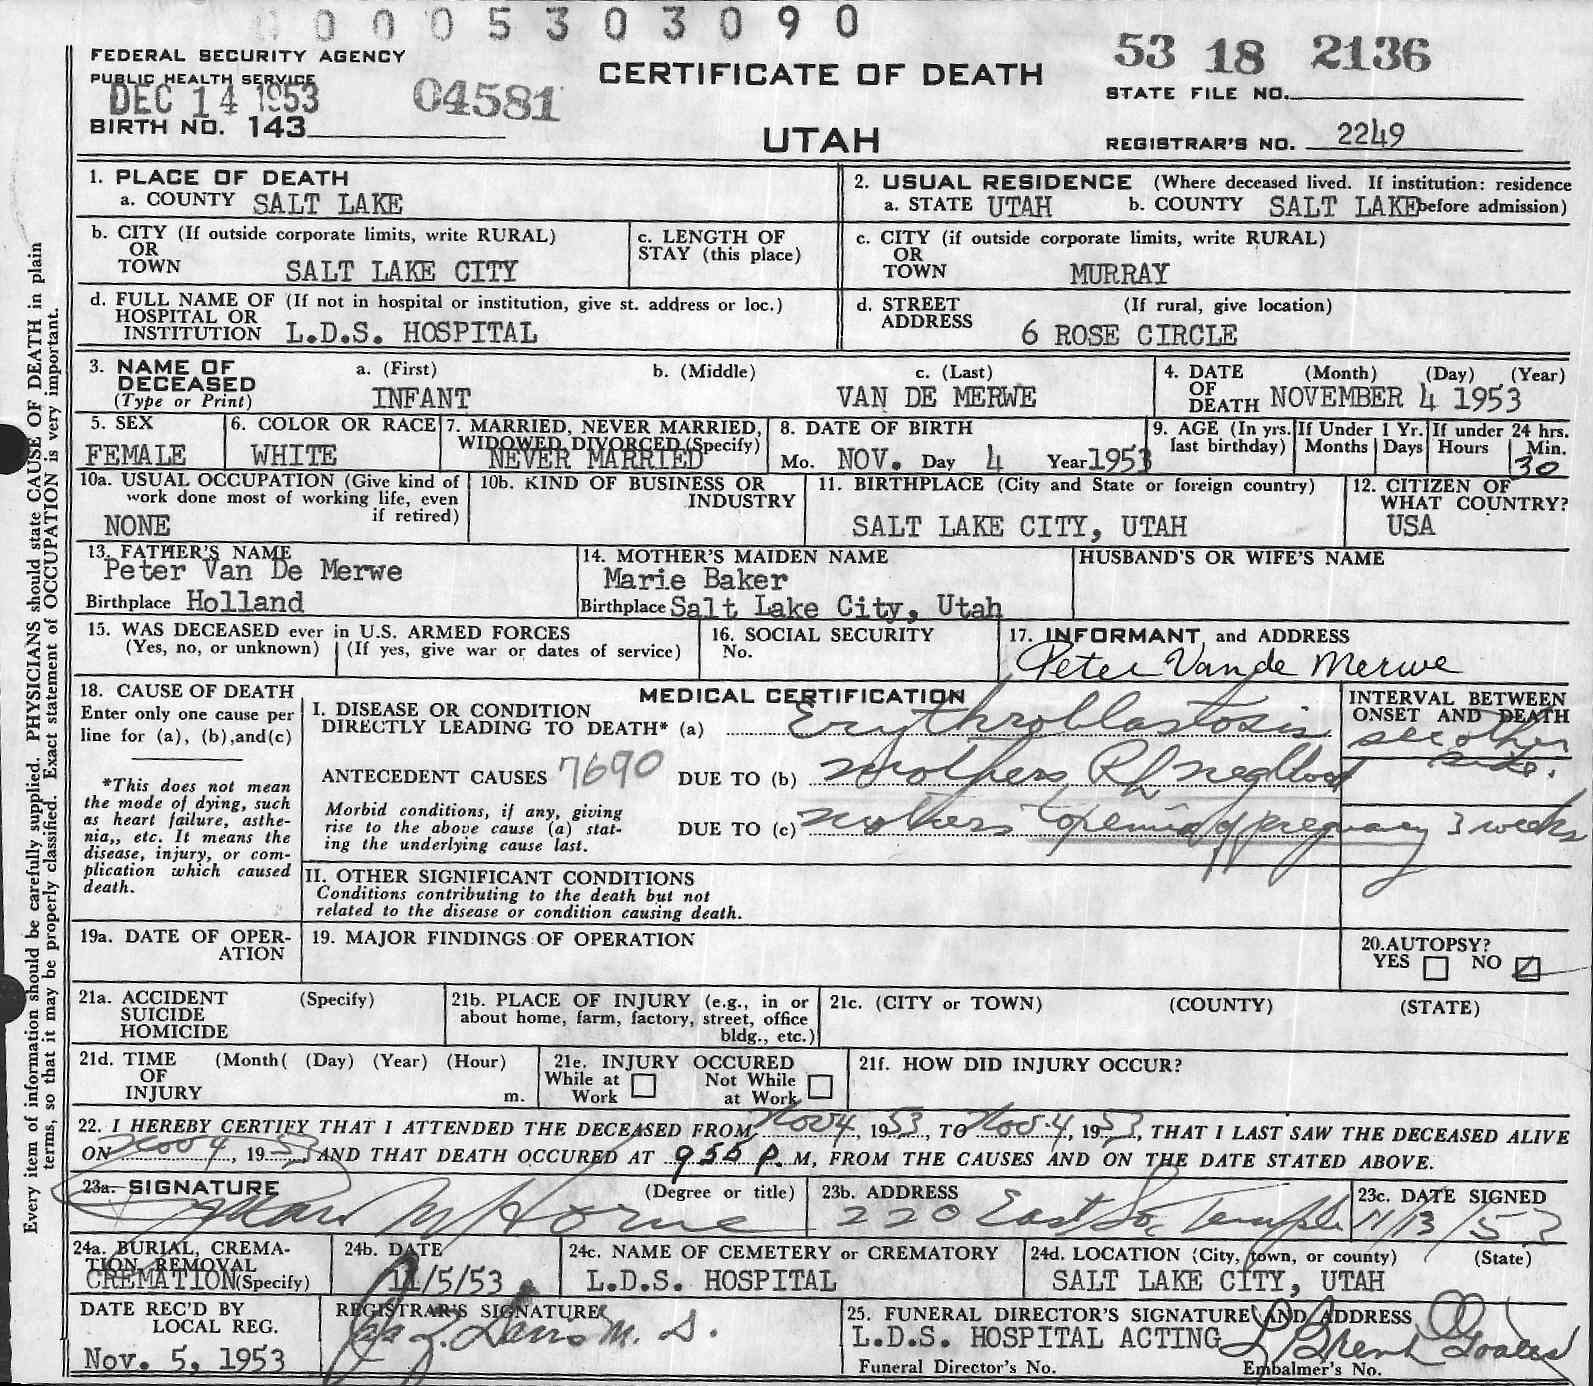 0 0 0 5 3 0 3 0 9 0
FEDERAL SECURITY AGENCY
PUBLIC HEALTH SERVICE
DEC 14 1953
04581
BIRTH NO. 143
CERTIFICATE OF DEATH
UTAH
53 18 2136
STATE FILE NO.
REGISTRAR'S NO. 2249
1. PLACE OF DEATH
a. COUNTY SALT LAKE
2. USUAL RESIDENCE (Where deceased lived. If institution: residence
a. STATE UTAH b. COUNTY SALT LAKE before admission)
b. CITY (If outside corporate limits, write RURAL)
OR
TOWN SALT LAKE CITY
c. LENGTH OF
STAY (this place)
c. CITY (if outside corporate limits, write RURAL)
OR
TOWN MURRAY
d. FULL NAME OF (If not in hospital or institution, give st. address or loc.)
HOSPITAL OR
INSTITUTION L.D.S. HOSPITAL
d. STREET (If rural, give location)
ADDRESS 6 ROSE CIRCLE
3. NAME OF a. (First) b. (Middle) c. (Last)
DECEASED
(Type or Print) INFANT VAN DE MERWE
4. DATE (Month) (Day) (Year)
OF
DEATH NOVEMBER 4 1953
5. SEX
FEMALE
6. COLOR OR RACE
WHITE
7. MARRIED, NEVER MARRIED,
WIDOWED DIVORCED (Specify)
NEVER MARRIED
8. DATE OF BIRTH
Mo. NOV. Day 4 Year 1953
9. AGE (In yrs. last birthday)
If Under 1 Yr.
Months Days
If under 24 hrs.
Hours Min.
30
10a. USUAL OCCUPATION (Give kind of
work done most of working life, even
if retired)
NONE
10b. KIND OF BUSINESS OR
INDUSTRY
11. BIRTHPLACE (City and State or foreign country)
SALT LAKE CITY, UTAH
12. CITIZEN OF
WHAT COUNTRY?
USA
13. FATHER'S NAME
Peter Van De Merwe
Birthplace Holland
14. MOTHER'S MAIDEN NAME
Marie Baker
Birthplace Salt Lake City, Utah
HUSBAND'S OR WIFE'S NAME
15. WAS DECEASED ever in U.S. ARMED FORCES
(Yes, no, or unknown) (If yes, give war or dates of service)
16. SOCIAL SECURITY
No.
17. INFORMANT and ADDRESS
Peter Van de Merwe
18. CAUSE OF DEATH
Enter only one cause per
line for (a), (b),and(c)
*This does not mean
the mode of dying, such
as heart failure, asthe-
nia,, etc. It means the
disease, injury, or com-
plication which caused
death.
MEDICAL CERTIFICATION
I. DISEASE OR CONDITION
DIRECTLY LEADING TO DEATH* (a) Erythroblastosis
ANTECEDENT CAUSES 7690 DUE TO (b) Mothers Rh neg blood
Morbid conditions, if any, giving
rise to the above cause (a) stat-
ing the underlying cause last.
DUE TO (c) Mothers toxemia of pregnancy 3 weeks
INTERVAL BETWEEN
ONSET AND DEATH
see other
side.
II. OTHER SIGNIFICANT CONDITIONS
Conditions contributing to the death but not
related to the disease or condition causing death.
19a. DATE OF OPER-
ATION
19. MAJOR FINDINGS OF OPERATION
20. AUTOPSY?
YES NO
21a. ACCIDENT (Specify)
SUICIDE
HOMICIDE
21b. PLACE OF INJURY (e.g., in or
about home, farm, factory, street, office
bldg., etc.)
21c. (CITY or TOWN) (COUNTY) (STATE)
21d. TIME (Month( (Day) (Year) (Hour)
OF
INJURY m.
21e. INJURY OCCURED
While at Work
Not While at Work
21f. HOW DID INJURY OCCUR?
22. I HEREBY CERTIFY THAT I ATTENDED THE DECEASED FROM Nov 4, 1953, TO Nov. 4, 1953, THAT I LAST SAW THE DECEASED ALIVE
ON Nov 4, 1953 AND THAT DEATH OCCURED AT 9 55 P. M, FROM THE CAUSES AND ON THE DATE STATED ABOVE.
23a. SIGNATURE (Degree or title)
Horne
23b. ADDRESS
220 East So. Temple
23c. DATE SIGNED
11/13/53
24a. BURIAL, CREMA-
TION, REMOVAL
CREMATION (Specify)
24b. DATE
11/5/53
24c. NAME OF CEMETERY or CREMATORY
L.D.S. HOSPITAL
24d. LOCATION (City, town, or county) (State)
SALT LAKE CITY, UTAH
DATE REC'D BY
LOCAL REG.
Nov. 5, 1953
REGISTRAR'S SIGNATURE
M. D.
25. FUNERAL DIRECTOR'S SIGNATURE AND ADDRESS
L.D.S. HOSPITAL ACTING
Funeral Director's No. Embalmer's No.
Every item of information should be carefully supplied. PHYSICIANS should state CAUSE OF DEATH in plain
terms, so that it may be properly classified. Exact statement of OCCUPATION is very important.